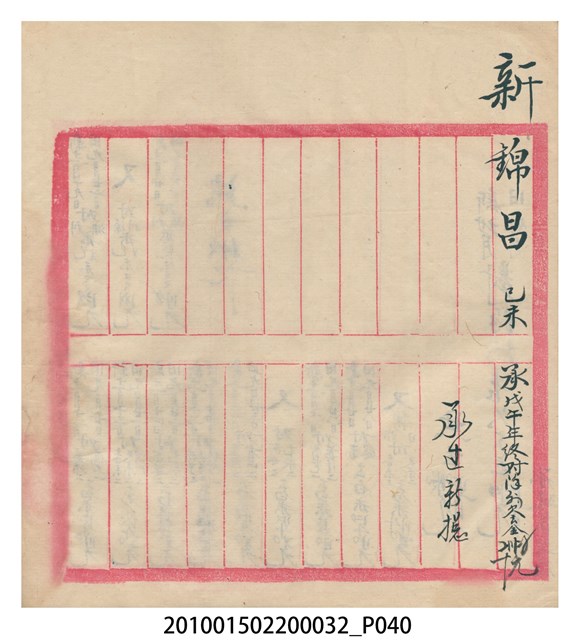 新錦昌 己未
承戊午年終對除外欠金
承过新摠
201001502200032_P040